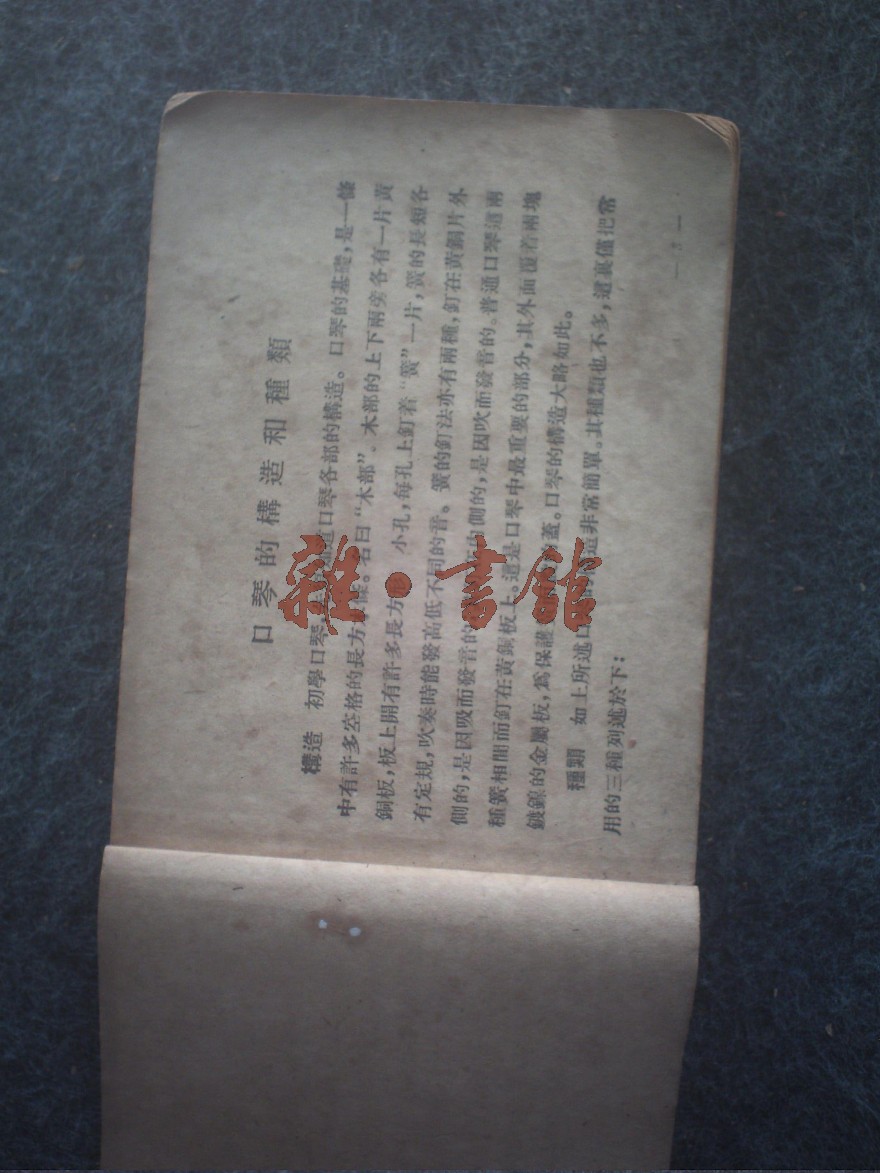 口琴的構造和種類
構造 初學口琴,道口琴各部的構造。口琴的基礎,是一條
中有許多空格的長方條。名曰“木部”。木部的上下兩旁各有一片黃
銅板,板上開有許多長方形小孔,每孔上釘著“簧”一片,簧的長短各
有定規,吹奏時能發高低不同的音。簧的釘法亦有兩種,釘在黃銅片外
側的,是因吸而發音的內側的,是因吹而發音的。普通口琴這兩
種簧相間而釘在黃銅板上。這是口琴中最重要的部分,其外面覆着兩塊
鍍鎳的金屬板,爲保護蓋。口琴的構造大略如此。
種類 如上所述口造非常簡單。其種類也不多,這裏僅把常
用的三種列述於下: